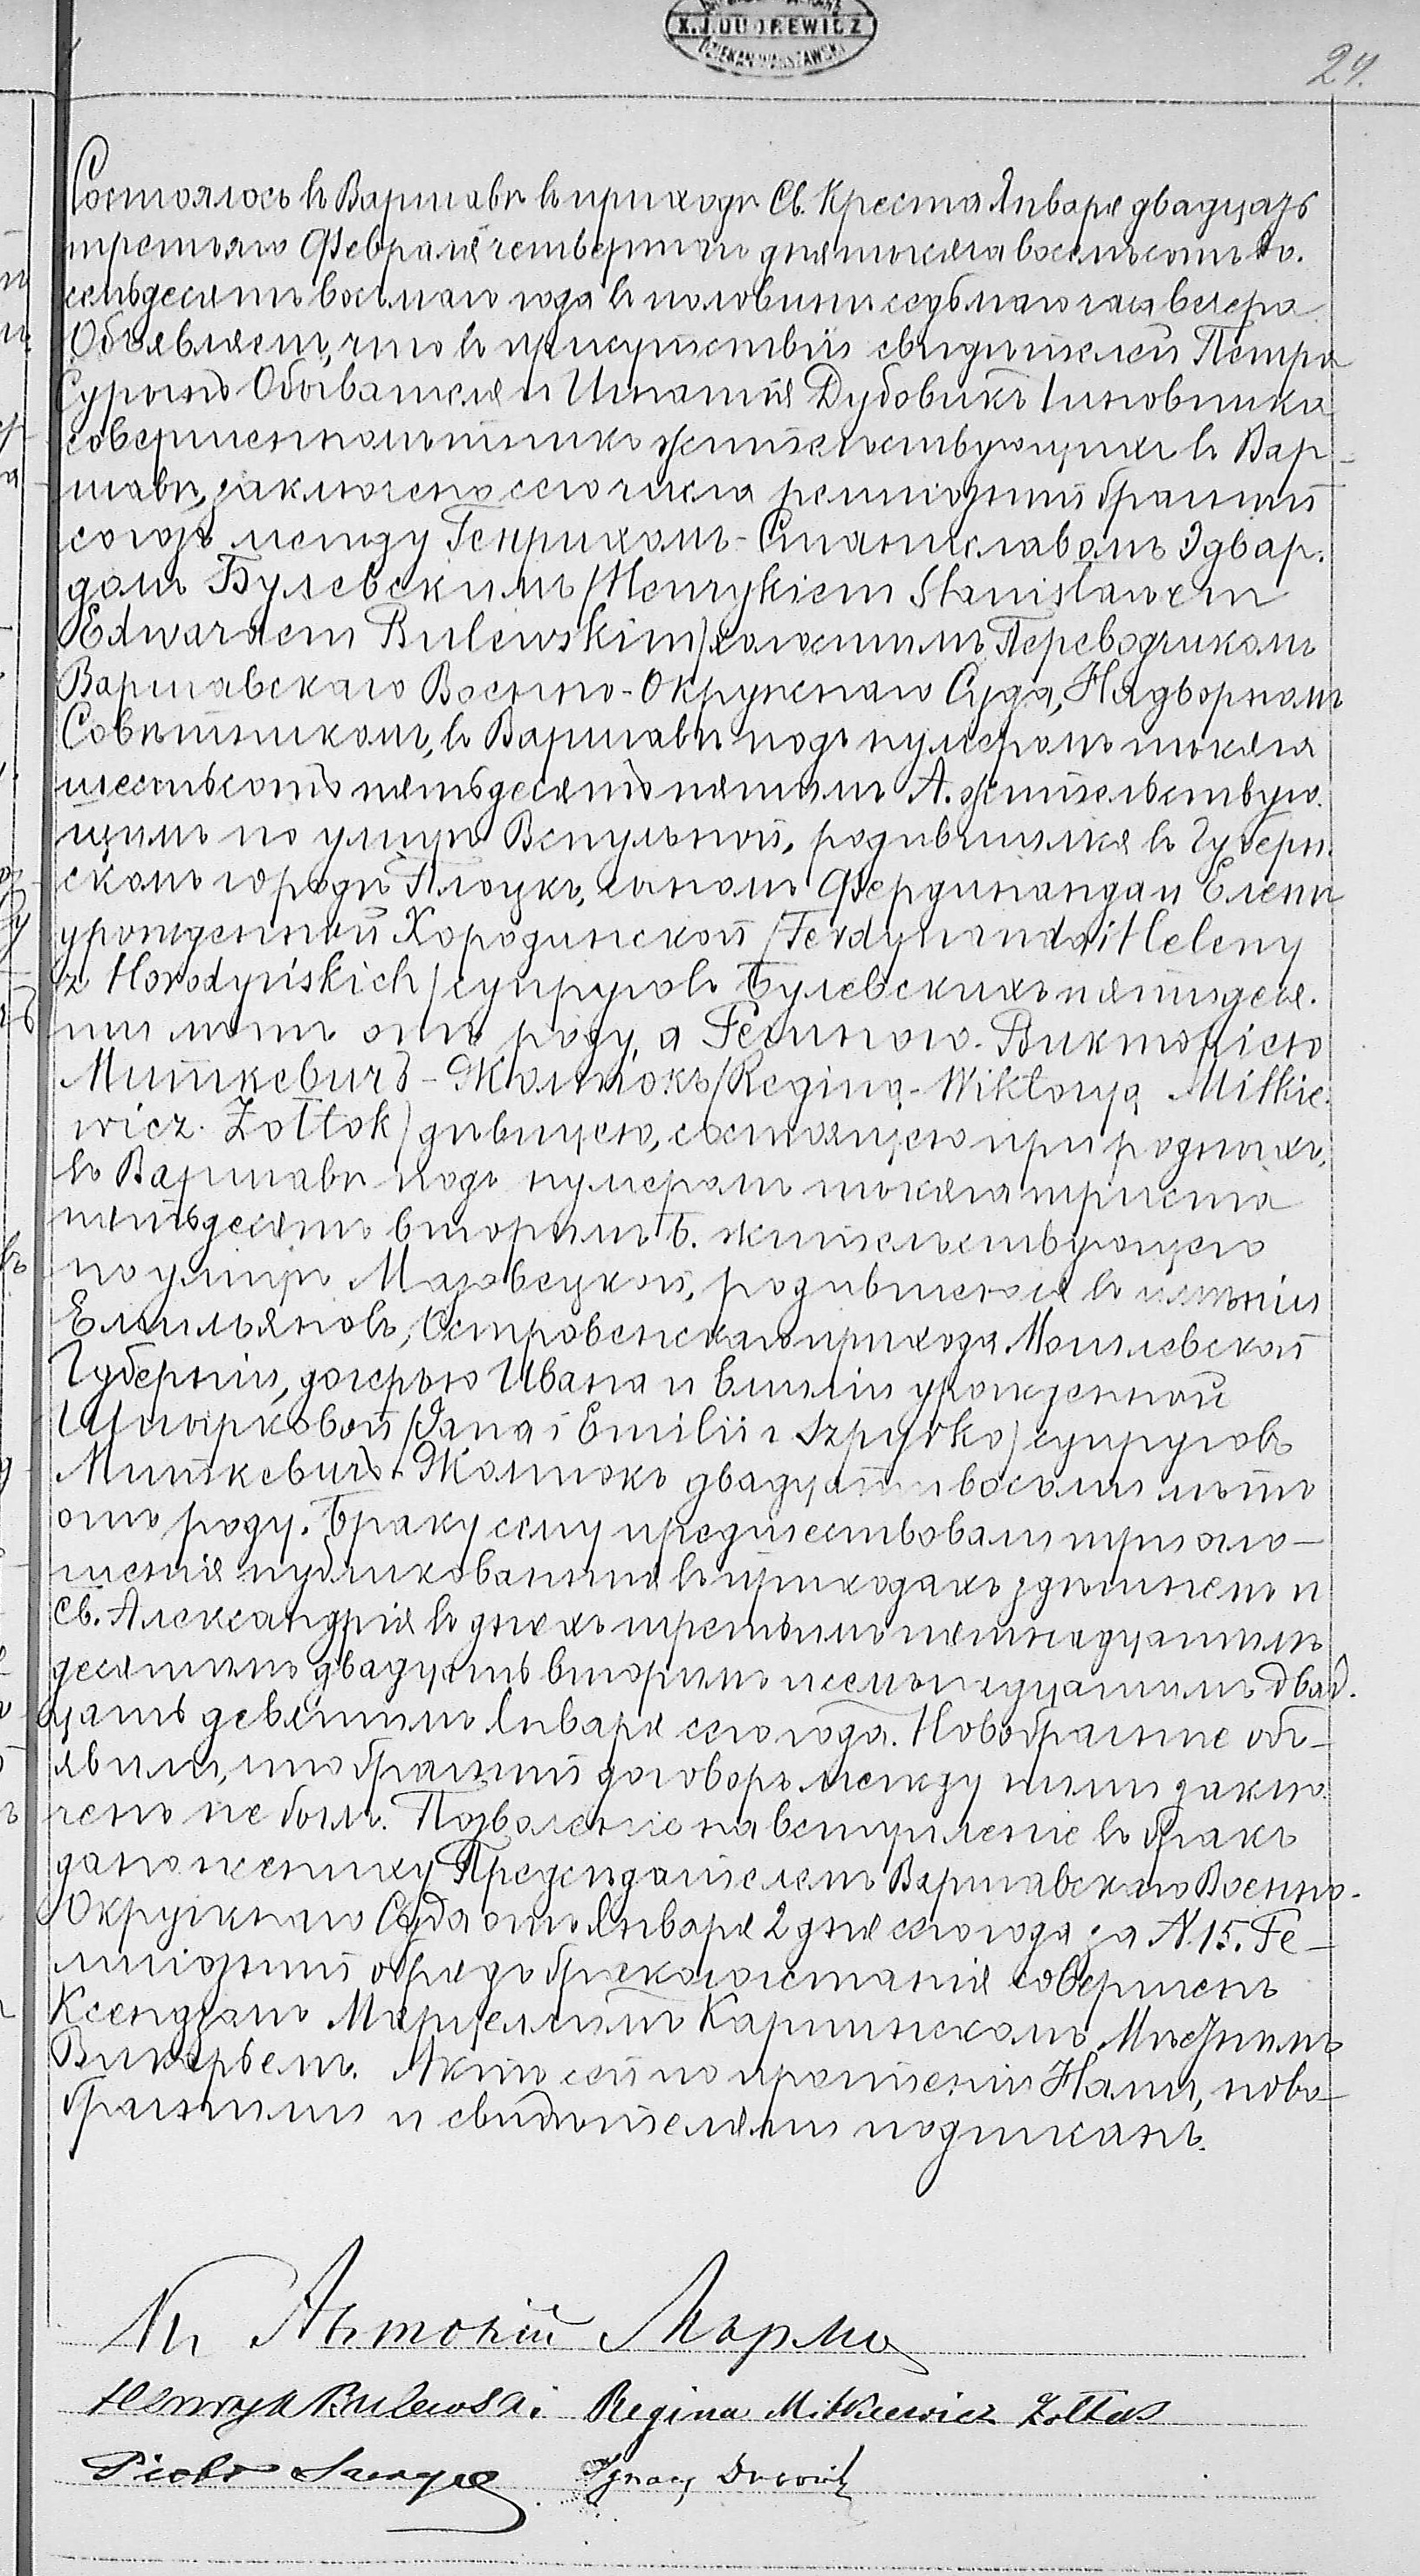 X.J.DUDREWICZ
DZIEKAN WARSZAWSKI
24.
Состоялось въ Варшавѣ въ приходѣ Св. Креста Января двадцать
третьяго Февраля четвертаго дня тысяча восемьсотъ во-
семьдесятъ восьмаго года въ половинѣ седьмаго часа вечера.
Объявляемъ, что въ присутствіи свидѣтелей Петра
Обывателя и Игнатія Дубовикъ Чиновника
совершеннолѣтнихъ жительствующихъ въ Вар-
шавѣ, заключенъ сего числа религіозный брачный
союзъ между Генрихомъ-Станиславомъ Эдвар-
домъ Булевскимъ /Henrykiem Stanisławem
Edwardem Bulewskim/ холостымъ Переводчикомъ
Варшавскаго Военно-Окружнаго Суда, Надворнымъ
Совѣтникомъ, въ Варшавѣ подъ нумеромъ тысяча
шестьсотъ пятьдесятъ пятымъ А. жительствую-
щимъ по улицѣ Вспульной, родившимся въ Губерн-
скомъ городѣ Плоцкѣ, сыномъ Фердинанда и Елены
урожденной Хородинской /Ferdynanda i Heleny
z Horodyńskich/ супруговъ Булевскихъ пятидеся-
ти лѣтъ отъ роду, а Региною-Викторіею
Миткевичъ-Жолтокъ /Reginą-Wiktoryą Mitkie-
wicz-Żołtok/ дѣвицею, состоящею при родныхъ,
въ Варшавѣ подъ нумеромъ тысяча триста
пятьдесятъ вторымъ Б. жительствующею
по улицѣ Мазовецкой, родившеюся въ имѣніи
Емильяновъ, Островенскаго прихода Могилевской
Губерніи, дочерью Ивана и Емиліи урожденной
Шпырковой /Jana i Emilii z Szpyrko/ супруговъ
Миткевичъ-Жолтокъ двадцати восьми лѣтъ
отъ роду. Браку сему предшествовали три огла-
шенія публикованныя въ приходахъ здѣшнемъ и
Св. Александра въ дняхъ третьимъ пятнадцатымъ
десятымъ двадцать вторымъ и семнадцатымъ двад-
цать девятымъ Января сего года. Новобрачные объ-
явили, что брачный договоръ между ними заклю-
ченъ не былъ. Позволеніе на вступленіе въ бракъ
дано жениху Предсѣдателемъ Варшавскаго Военно-
Окружнаго Суда отъ Января 2 дня сего года за N. 15. Ре-
лигіозный обрядъ бракосочетанія совершенъ
Ксендзомъ Марцеліемъ Мѣстнымъ
Викарьемъ. Актъ сей по прочтеніи Нами, ново-
брачными и свидѣтелями подписанъ.
Кс Антоній
Henryk Bulewski. Regina Mitkiewicz Żołtok
Piotr Ignacy Dubowik